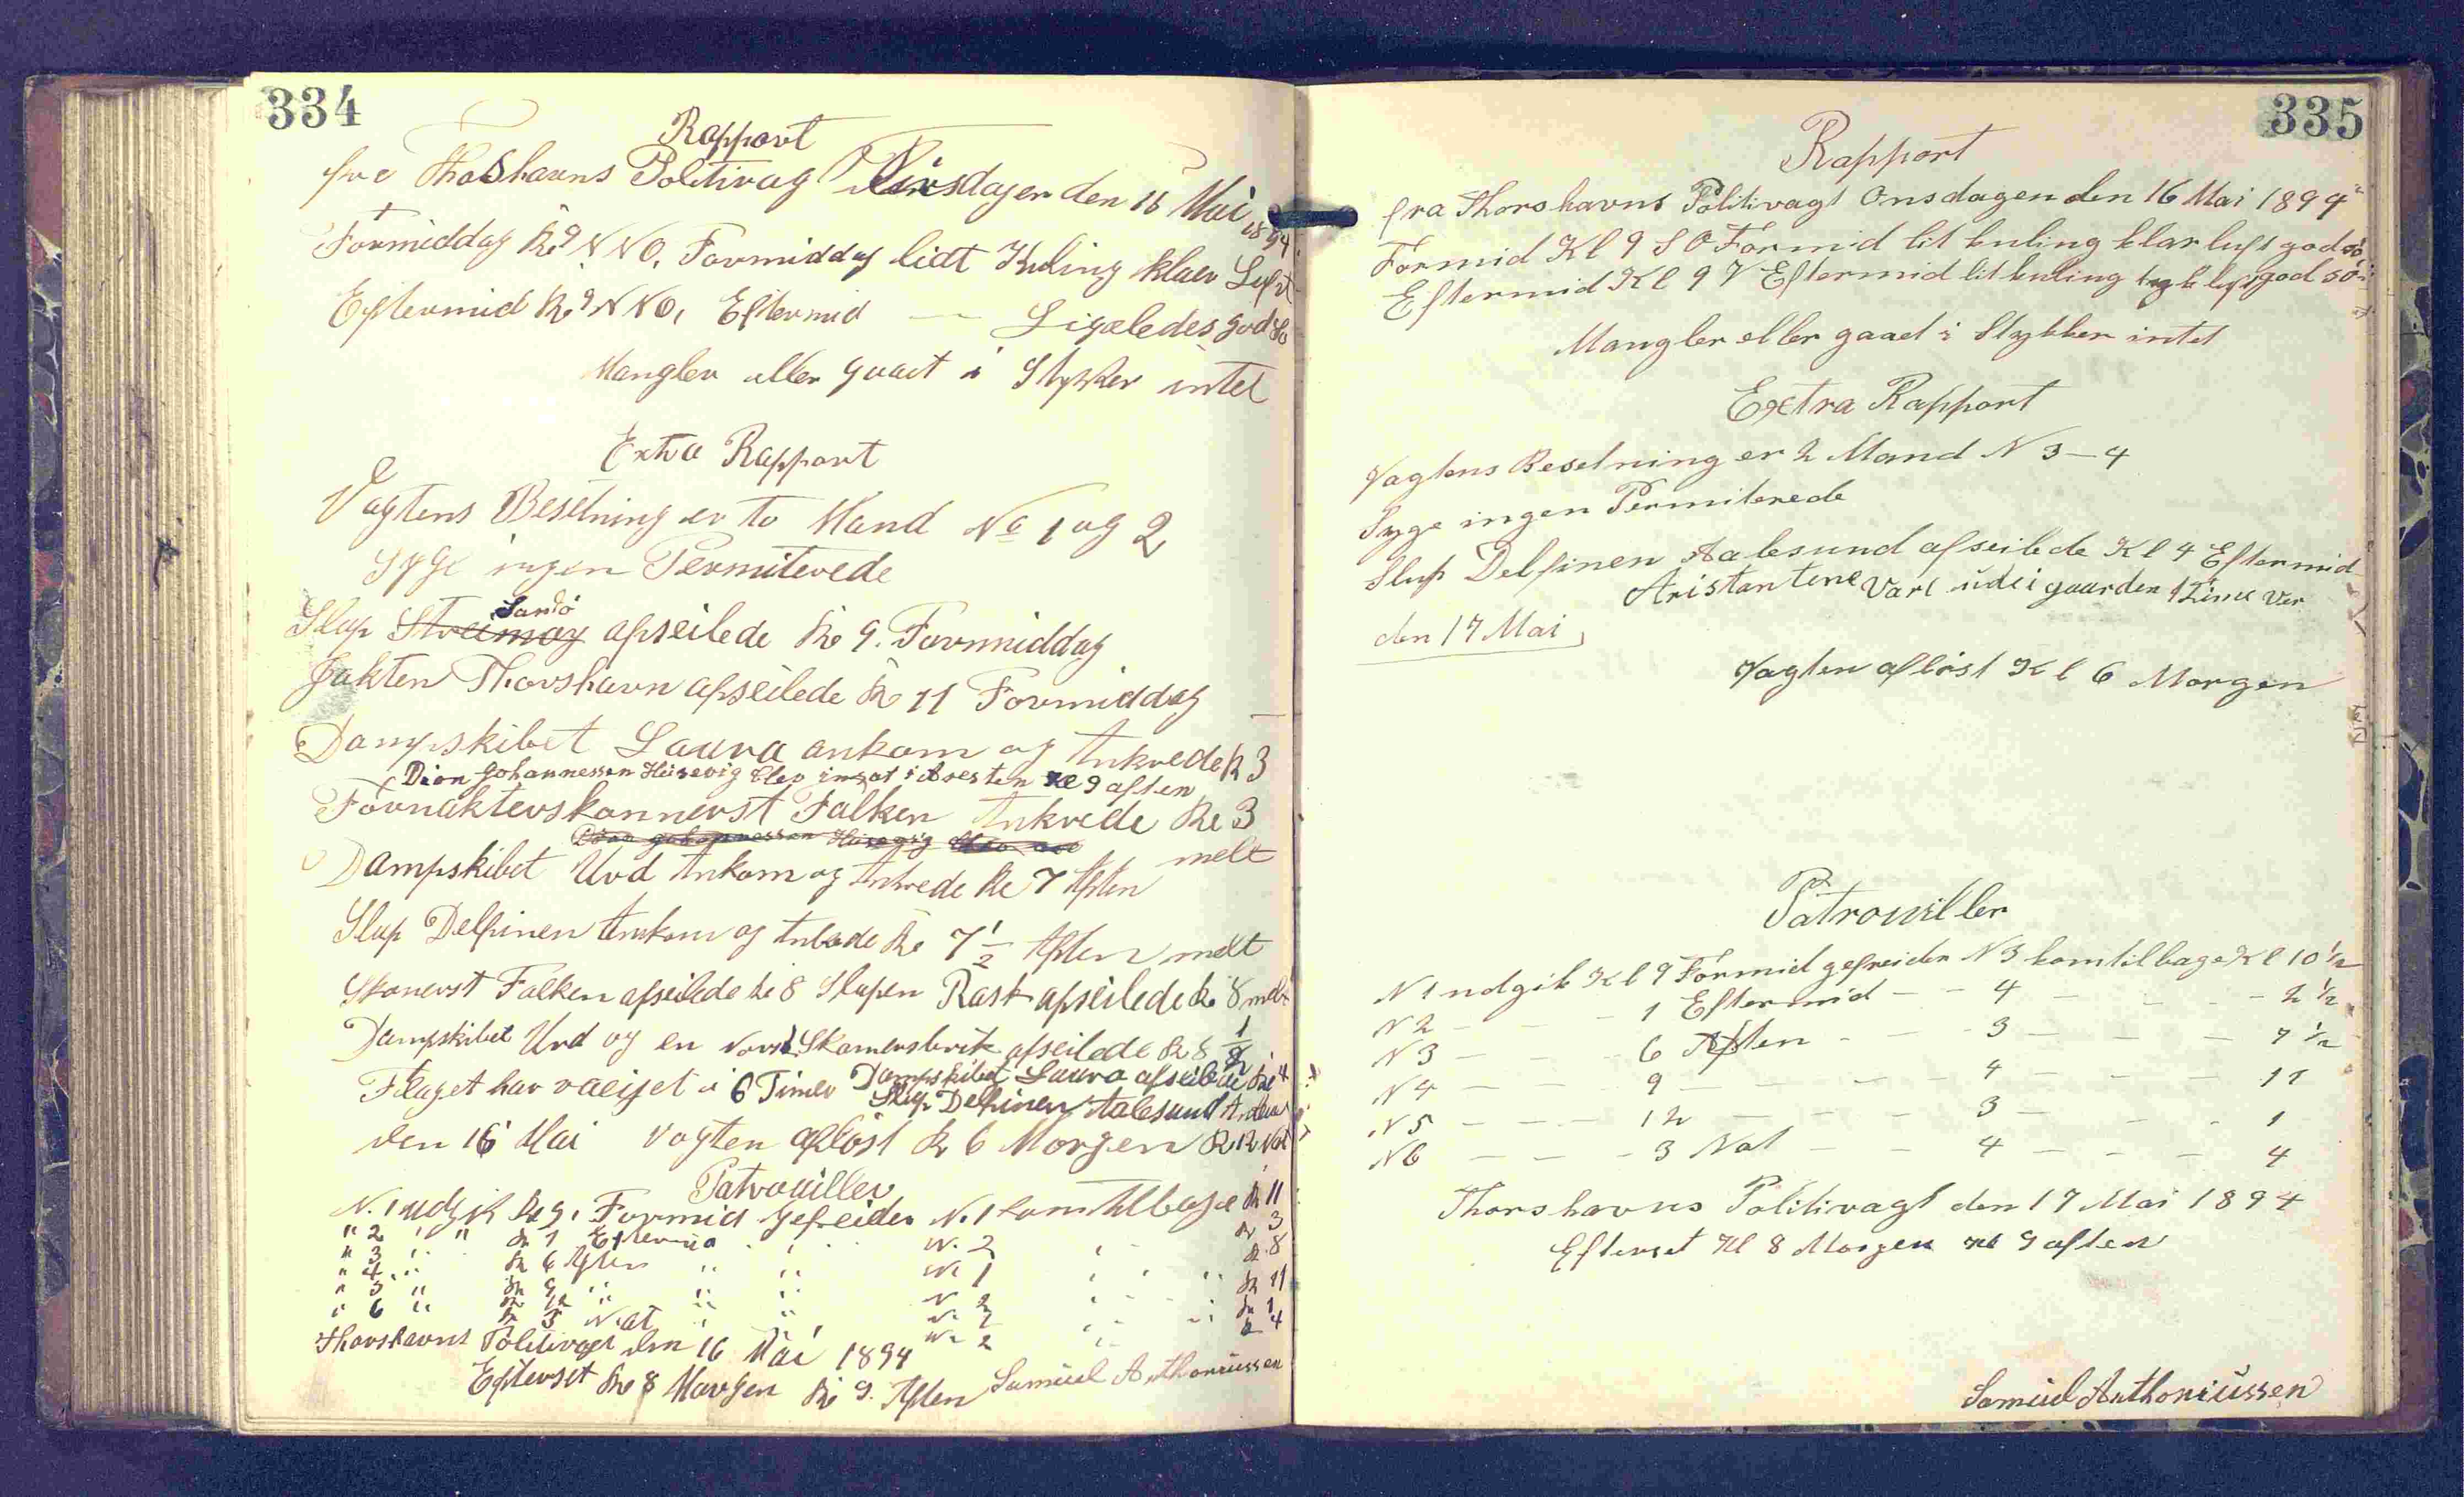 334
Rapport
fra Thorshavns Politivagt Tirsdagen den 15 Mai 1894
Formiddag Kl 9 NNO, Formiddag lidt Kuling klar Luft
Eftermid Kl 9 NNO, Eftermid — Ligeledes god Sø
Mangler eller gaaet i Stykker intet
Extra Rapport
Vagtens Besetning er to Mand No 1 og 2
Syge ingen Permiterede
Sandö
Slup Streimoy afseilede Kl 9. Formiddag
Jakten Thorshavn afseilede Kl 11 Formiddag
Dampskibet Laura ankom og Ankrede Kl 3
Johannessen Húsevig blev insat i Aresten Kl 9 aften
Skonnerst Falken Ankrede Kl 3
Dampskibet Urd Ankom og Ankrede Kl 7 Aften melt
Slup Delfinen Ankom og Ankrede Kl 7 1/2 Aften melt
Skonerst Falken afseilede Kl 8 Slupen Rask afseilede Kl 8 melt
Dampskibet Urd og en Norsk afseilede Kl 8 1/2
Flaget har vaeiet i 6 Timer Dampskibet Laura afseilede Kl 4
Slup Delfinen Aalesund
den 16 Mai Vagten afløst Kl 6 Morgen Kl 12 Nat
Patrouiller
N. 1 udgik Kl 9. Formid gefreider N. 1 kom tilbage Kl 11
" 2 " " Kl 1 Eftermid " " N. 2 " Kl 3
" 3 " Kl 6 Aften " " N. 1 " " " Kl 8
" 4 " Kl 9 " " " N. 2 " " Kl 11
" 5 " Kl 12 " " " N. 2 " " Kl 1
" 6 " Kl 3 Nat " " N. 2 " Kl 4
Thorshavns Politivagt den 16 Mai 1894
Efterset Kl 8 Morgen Kl 9. Aften Samuel Anthoniussen
335
Rapport
fra Thorshavns Politivagt Onsdagen den 16 Mai 1894
Formid Kl 9 S O Formid lit kuling klar luft god sö
Eftermid Kl 9 V Eftermid lit kuling luft god sö
Mangler eller gaaet i Stykker intet
Extra Rapport
Vagtens Besetning er 2 Mand N 3 – 4
Syge ingen Permiterede
Slup Delfinen Aalesund afseilede Kl 4 Eftermid
Aristantene Vare ude i gaarden 1 Time Ver
den 17 Mai
Vagten afløst Kl 6 Morgen
Patrouiller
N 1 udgik Kl 9 Formid gefreider N 3 kom tilbage Kl 10 1/2
N 2 — — — 1 Eftermid — — 4 — — — 2 1/2
N 3 — — — 6 Aften — — 3 — — — 7 1/2
N 4 — — — 9 — — — 4 — — — 11
N 5 — — — 12 — — — 3 — — — 1
N 6 — — — 3 Nat — — 4 — — — 4
Thorshavns Politivagt den 17 Mai 1894
Efterset Kl 8 Morgen Kl 9 aften
Samuel Anthoniussen